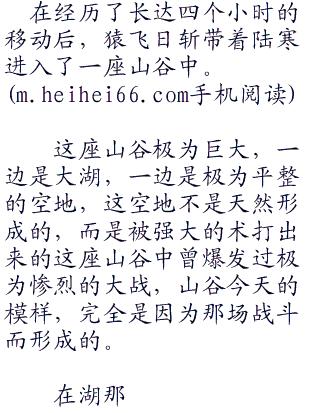 在经历了长达四个小时的
移动后，猿飞日斩带着陆寒
进入了一座山谷中。
(m.heihei66.com手机阅读)
这座山谷极为巨大，一
边是大湖，一边是极为平整
的空地，这空地不是天然形
成的，而是被强大的术打出
来的这座山谷中曾爆发过极
为惨烈的大战，山谷今天的
模样，完全是因为那场战斗
而形成的。
在湖那